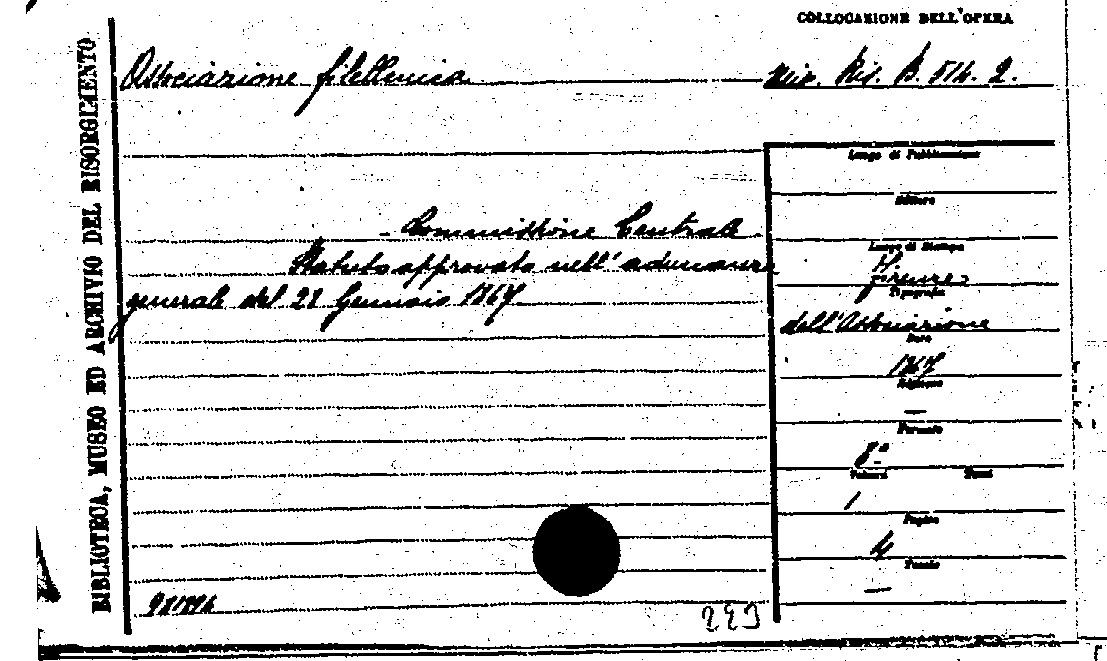 COLLOCAZIONE DELL'OPERA
Associazione filellenica
Mis. Ris. B. 514. 2.
BIBLIOTECA, MUSEO ED ARCHIVIO DEL RISORGIMENTO
- Commissione Centrale -
Statuto approvato nell'adunanza
generale del 28 Gennaio 1867.
Luogo di Pubblicazione
Editore
Luogo di Stampa
Firenze
Tipografia
dell'Associazione
Data
1867
Edizione
—
Formato
8°
Volumi Tomi
1
Pagine
4
Tavole
—
239